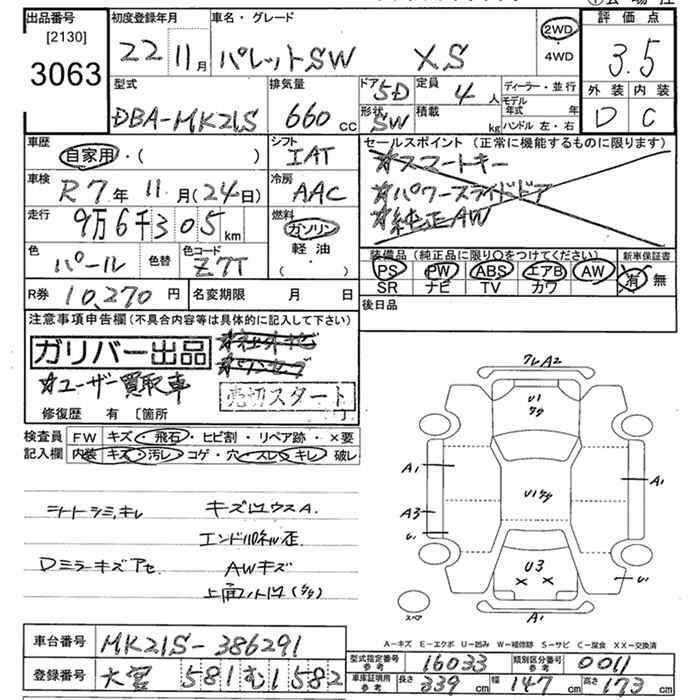 出品番号 初度登録年月 車名・グレード 評価点
[2130]
3063 22年 11月 パレットSW XS 2WD・4WD 3.5
外装 内装
D C
型式 排気量 ドア 5D 定員 4人 ディーラー・並行
DBA-MK21S 660cc 形状 SW 積載 kg モデル年式 年
ハンドル 左・右
車歴 シフト セールスポイント (正常に機能するものに限ります)
自家用・( ) IAT ☆スマートキー
車検 冷房 ☆パワースライドドア
R7年 11月(24日) AAC ☆純正AW
走行 燃料
9万6千305km ガソリン
軽油
( ・ )
色 色替 色コード 装備品 (純正品に限り○をつけてください) 新車保証書
パール Z7T PS PW ABS エアB AW 有・無
SR ナビ TV カワ
R券 10,270円 名変期限 月 日 後日品
注意事項申告欄(不具合内容等は具体的に記入して下さい)
ガリバー出品 ☆社外ナビ
☆ワンセグ
☆ユーザー買取車 売切スタート
修復歴 有 [箇所
検査員記入欄 FW キズ・飛石・ヒビ割・リペア跡・×要
内装 キズ・汚レ・コゲ・穴・スレ・キレ・破レ
シートシミ,キレ キズ凹ウスA.
エンドパネル歪
Dミラーキズアセ AWキズ
フレA2
U1
A1 A1
A3
U3
A1
スペア
A-キズ E-エクボ U-凹み W-補修跡 S-サビ C-腐食 XX-交換済
車台番号 MK21S-386291
型式指定番号 参考 16033 類別区分番号 参考 0011
登録番号 大宮 581 む 1582
車庫証明用 参考 長さ 339cm 幅 147cm 高さ 173cm